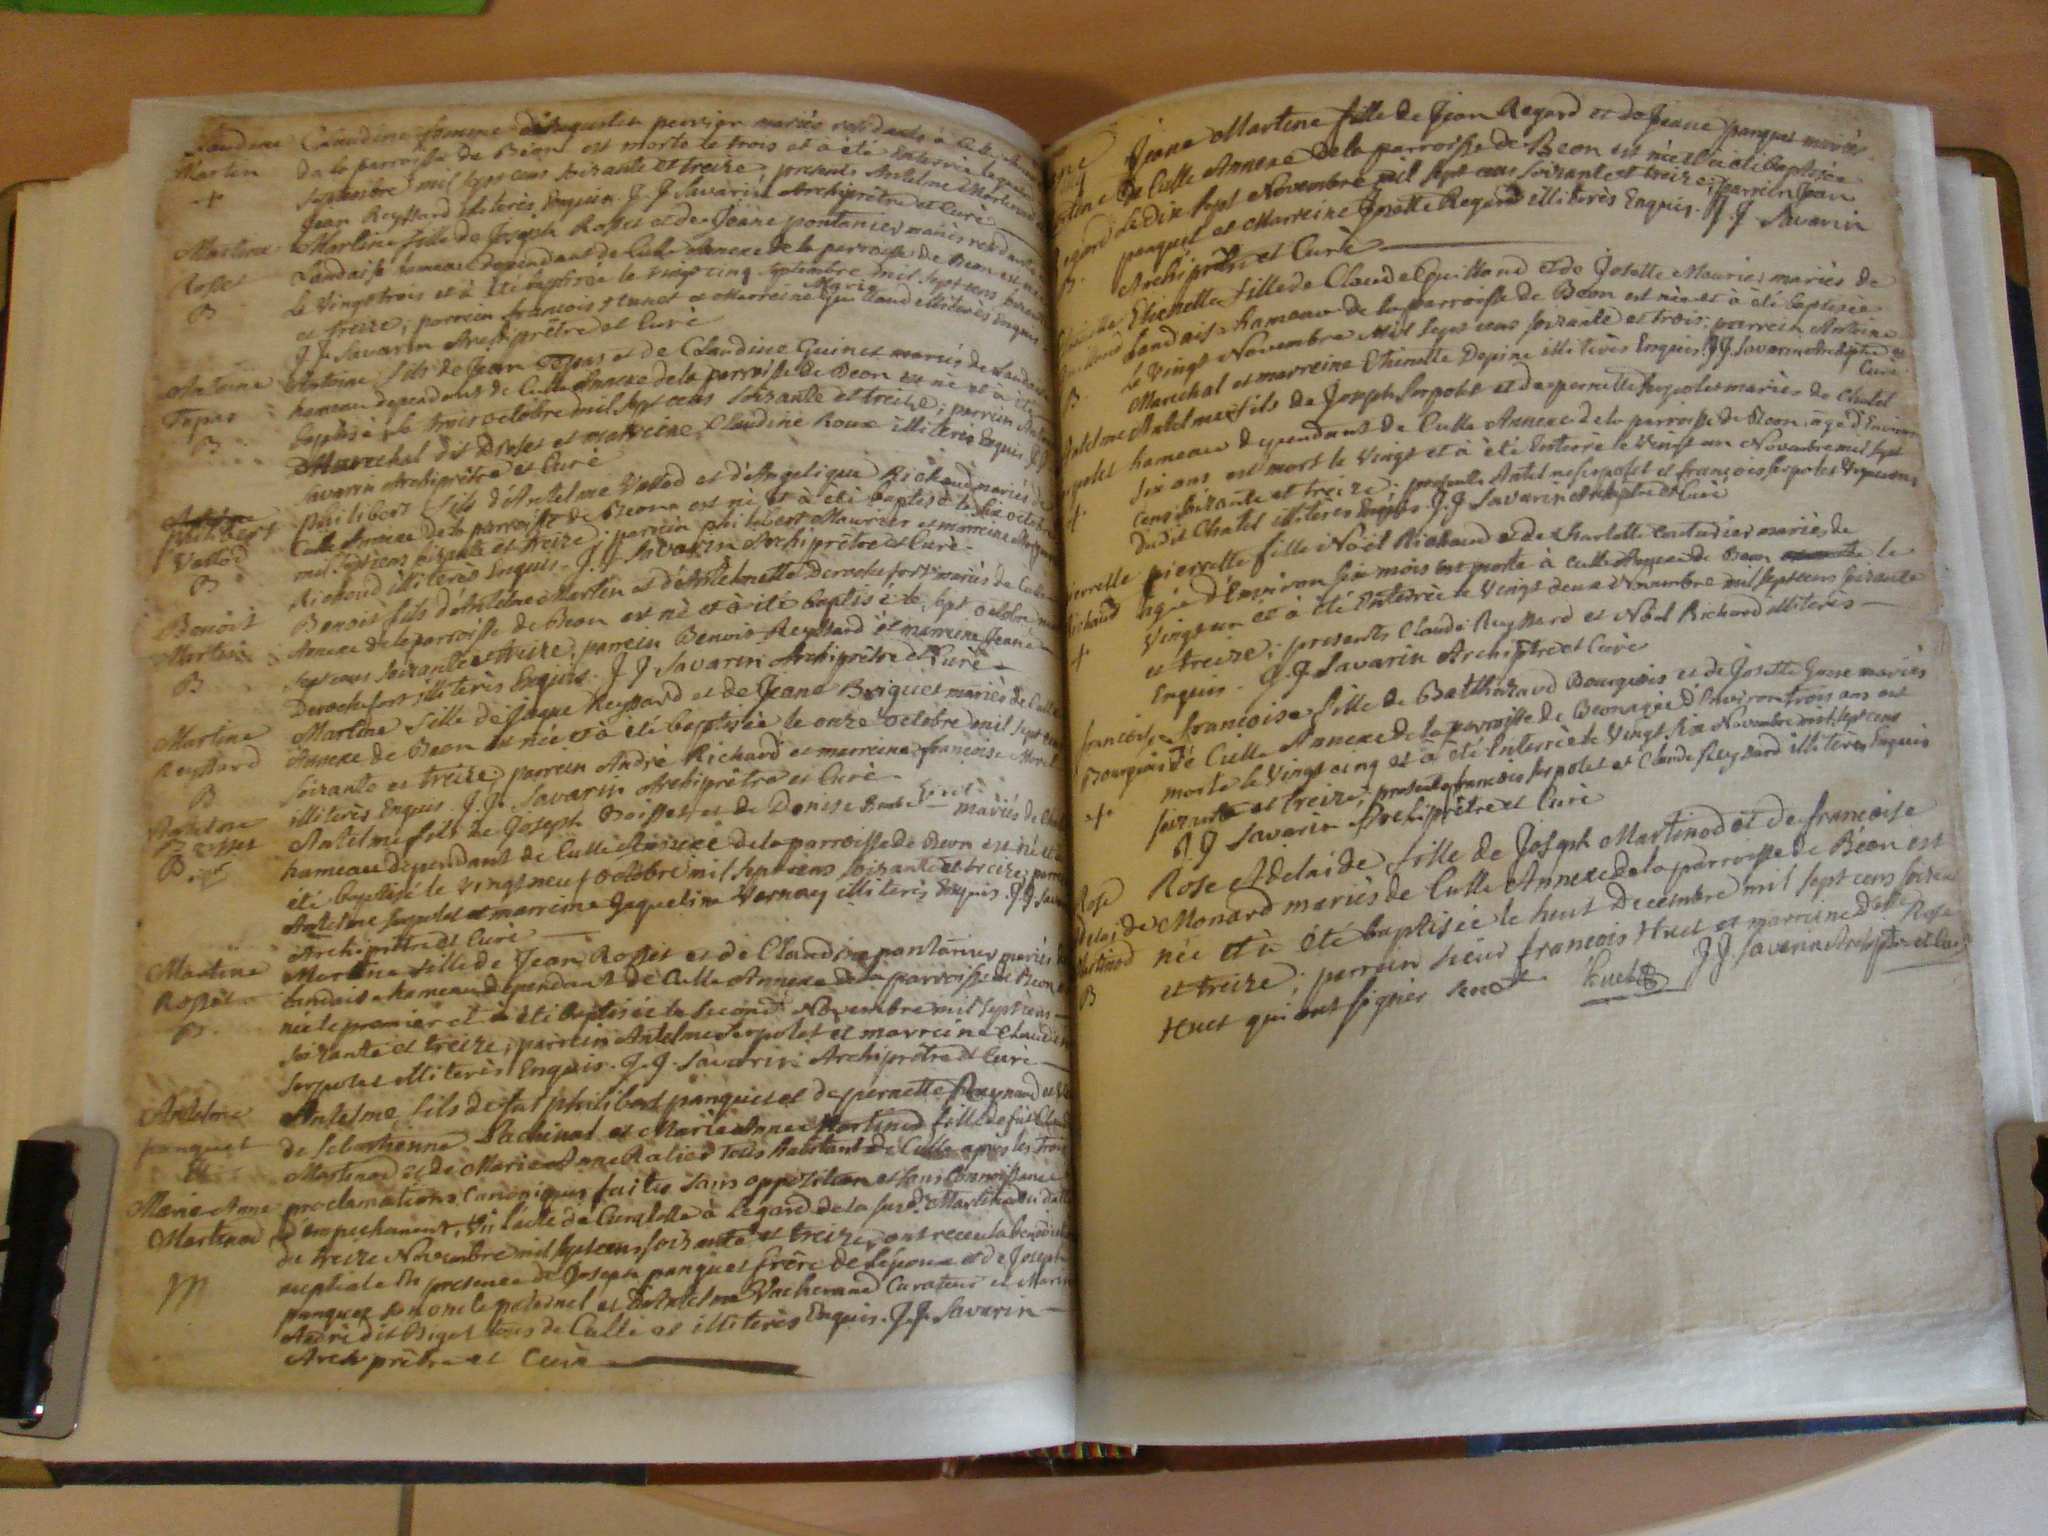 Claudine femme d'Augustin perrier mariés residants à Culle
Martin
de la parroisse de Béon est morte le trois et à été Enterrée le quatre
+
septembre mil sept cens soixante et treize; presents Antelme Martinod
Jean Reyssard illiterès Enquis. J. J. Savarin Archiprêtre et Curè
Martine
Martine fille de Joseph Rosset et de Jeane pontanier mariès residants
Rosset
Landaise hameau dependant de Culle Annexe de la parroisse de Beon est née
B
le Vingt trois et à été baptisée le vingt cinq septembre mil sept cens soixante
et treize; parrein francois Hunet et Marreine Marie Guillaud illiterès Enquis
J. J. Savarin Archiprêtre et Curè
Antoine
Antoine fils de Jean Topas et de Claudine Guinet mariès de Landaise
Topas
hameau dependant de Culle Annexe de la parroisse de Beon est né et à été
B
baptisé le trois octobre mil sept cens soixante et treize; parrein Antoine
Marechal dit Drolet et marreine Claudine Roux illiterès Enquis J. J.
Savarin Archiprêtre et Curè
philibert
philibert fils d'Antelme Vallod et d'Angelique Richaud mariès de
Vallod
Culle Annexe de la parroisse de Beon est né et à été baptisé le six octobre
B
mil sept cens soixante et treize; parrein philibert Maurier et marreine
Richaud illiterès Enquis. J. J. Savarin Archiprêtre et Curè
Benoit
Benoit fils d'Antelme Martin et d'Antelmette Derochefort mariès de Culle
Martin
Annexe de la parroisse de Beon est né et à été baptisé le sept octobre mil
B
sept cens soixante et treize; parrein Benoit Reyssard et marreine Jeane
Derochefort illiterès Enquis. J. J. Savarin Archiprêtre et Curè
Martine
Martine fille de Jaque Reyssard et de Jeane Briquet mariès de Culle
Reyssard
Annexe de Beon est née et à été baptisée le onze octobre mil sept cens
B
soixante et treize; parrein André Richard et marreine francoise Morel
illiterès Enquis. J. J. Savarin Archiprêtre et Curè
Antelme
Antelme fils de Joseph Rosset et de Denise mariès de Chatel
Rosset
hameau dependant de Culle Annexe de la parroisse de Beon est né et à
B
été baptisé le vingt neuf octobre mil sept cens soixante et treize; parrein
Antelme Serpolet et marreine Jaqueline Vernay illiterès Enquis. J. J. Savarin
Archiprêtre et Curè
Martine
Martine fille de Jean Rosset et de Claudine pontanier mariès
Rosset
Landaise hameau dependant de Culle Annexe de la parroisse de Beon est
B
née le premier et à été baptisée le second Novembre mil sept cens
soixante et treize; parrein Antelme Serpolet et marreine Claudine
Serpolet illiterès Enquis. J. J. Savarin Archiprêtre et Curè
Antelme
Antelme fils de fut philibert panquet et de pernette Reynaud et
panquet
de Sebastienne Pachinat et Marie Anne Martinod fille de fut Claude
Et
Martinod et de Marie Anne Ratier Tous habitant de Culle après les trois
Marie Anne
proclamations Canoniques faites sans opposition et sans Connoissance
Martinod
d'empechement, Vû l'acte de Curatelle à l'egard de la susd. Martinod en datte
du treize Novembre mil sept cens soixante et treize, ont receu la benediction
M
nuptiale En presence de Joseph panquet frère de l'époux et de Joseph
panquet son oncle paternel et d'Antelme Vacherand Curateur et Marin
André dit Biget tous de Culle et illiterès Enquis. J. J. Savarin
Archiprêtre et Curè
Jeane Martine fille de Jean Regard et de Jeane panquet mariès
de Culle Annexe de la parroisse de Beon est née et à été baptisée
Regard
le dix sept Novembre mil sept cens soixante et treize; parrein Jean
panquet et Marreine Josette Regard illiterès Enquis. J. J. Savarin
B
Archiprêtre et Curè
Etienette
Etienette fille de Claude Guilland et de Josette Maurier mariès de
Guilland
Landaise hameau de la parroisse de Beon est née et à été baptisée
le Vingt Novembre Mil sept cens soixante et trois; parrein Antoine
B
Marechal et marreine Ethienette Depine illiterès Enquis. J. J. Savarin Archiptre et
Curè
Antelme
Antelme fils de Joseph Serpolet et de pernette Serpolet mariès de Chatel
Serpolet
hameau dependant de Culle Annexe de la parroisse de Beon agé d'Environ
dix ans est mort le Vingt et à été Enterré le Vingt un Novembre mil sept
+
cens soixante et treize; presents Antelme Serpolet et francois Serpolet Vigneron
dudit Chatel illiterès Enquis. J. J. Savarin Archiptre et Curè
pierrette
pierrette fille Nöel Richaud et de Charlotte Couturier mariès de
Richaud
agée d'Environ six mois est morte à Culle Annexe de Beon le
+
Vingt un et à été Enterrée le Vingt deux Novembre mil sept cens soixante
et treize; presents Claude Reyssard et Nöel Richard illiterès
Enquis. J. J. Savarin Archiptre et Curè
francoise
francoise fille de Balthazard Bourgeois et de Josette mariès
Bourgeois
de Culle Annexe de la parroisse de Beon agée d'Environ trois ans est
morte le Vingt cinq et à été Enterrée le Vingt six Novembre mil sept cens
+
soixante et treize; presents francois Serpolet et Claude Reyssard illiterès Enquis
J. J. Savarin Archiprêtre et Curè
Rose
Rose Adelaide fille de Joseph Martinod et de francoise
Adelaide
Monard mariès de Culle Annexe de la parroisse de Béon est
Martinod
née et à été baptisée le huit Decembre mil sept cens soixante
B
et treize; parrein sieur francois Huet et marreine Delle Rose
Huet qui ont signer Huet J. J. Savarin Archiptre et Curè